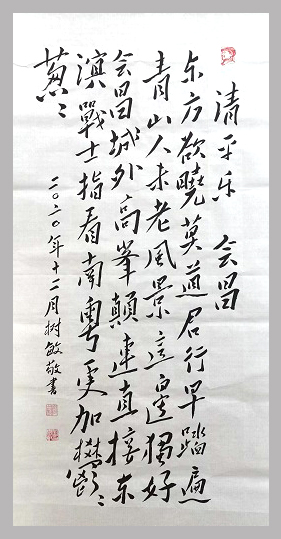 清平乐 会昌
东方欲曉莫道君行早踏遍
青山人未老风景这邊独好
会昌城外高峯顛連直接东
溟戰士指看南粤更加鬱〻
蔥〻
二〇二〇年十二月树敏敬書